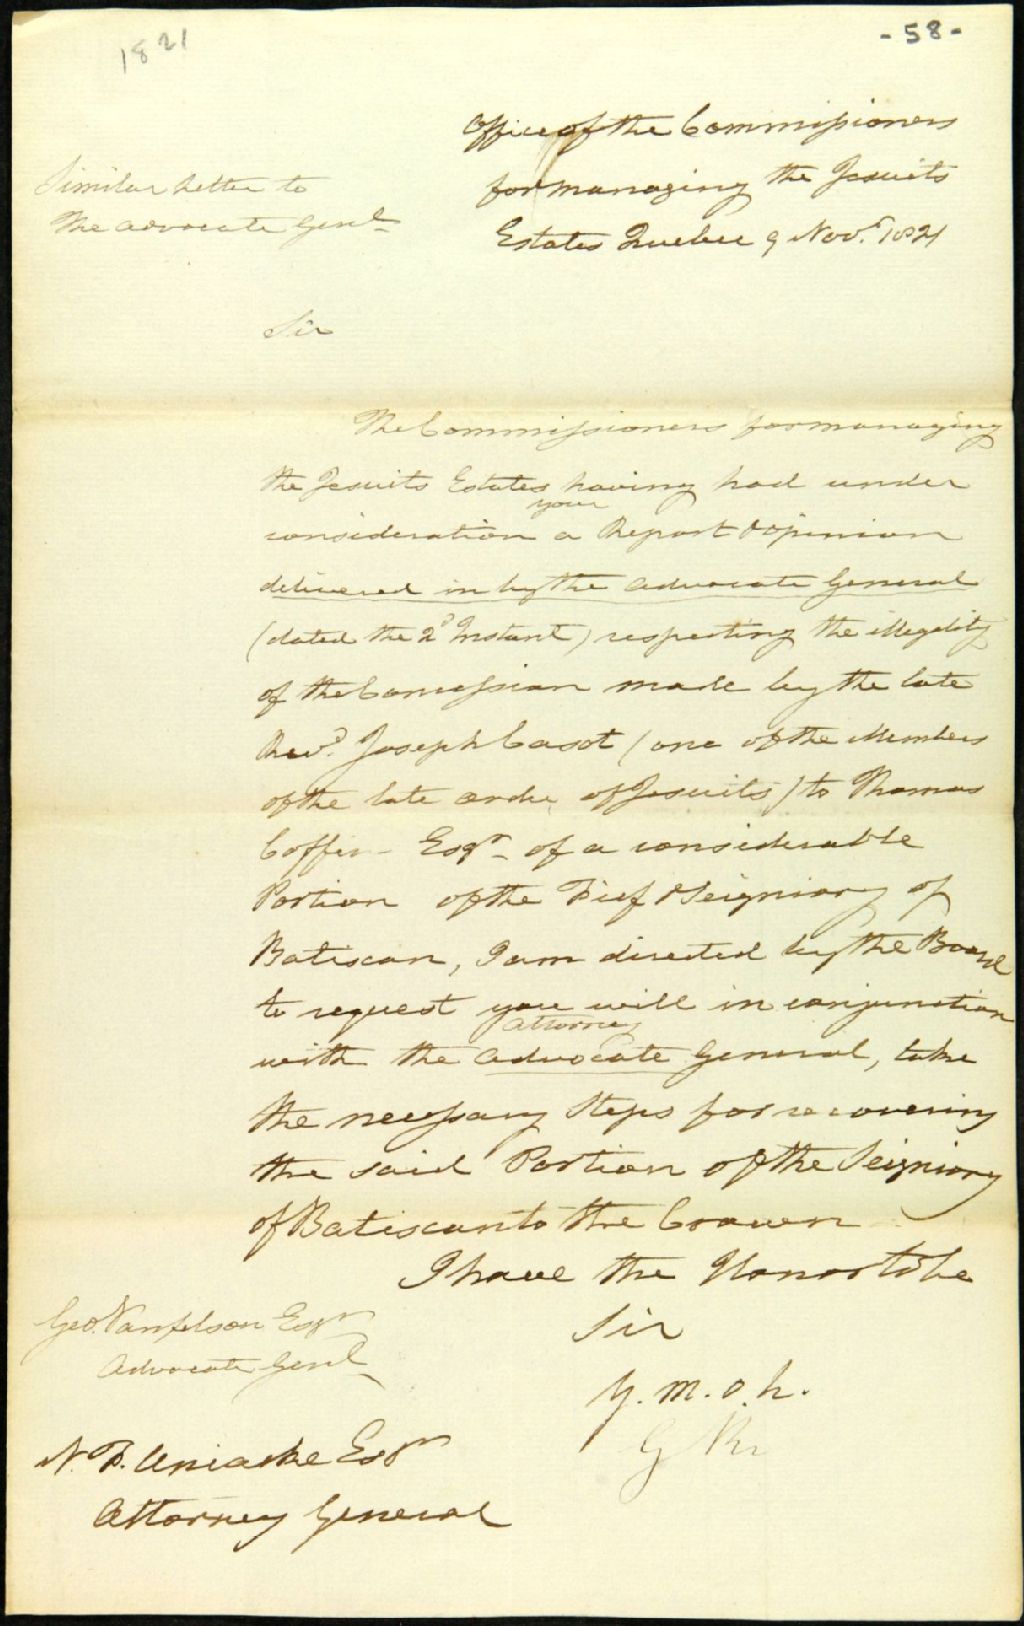 1821
- 58 -
Office of the Commissioners
for managing the Jesuits
Estates Quebec 9 Nov.r 1821
Similar Letter to
the Advocate Genl
Sir
The Commissioners for managing
the Jesuits Estates having had under
your
consideration a Report & Opinion
delivered in by the Advocate General
(dated the 2d Instant) respecting the illegality
of the Concession made by the late
Revd. Joseph Casot (one of the Members
of the late order of Jesuits) to Thomas
Coffin - Esqr - of a considerable
Portion of the Fief & Seigniory of
Batiscan, I am directed by the Board
to request you will in conjunction
Attorney
with the Advocate General, take
the necessary Steps for recovering
the said Portion of the Seigniory
of Batiscan to the Crown
I have the Honor to be
Sir
Y. m. o. h.
Geo. Vanfelson Esqr
Advocate Genl
N. F. Uniacke Esqr
Attorney General